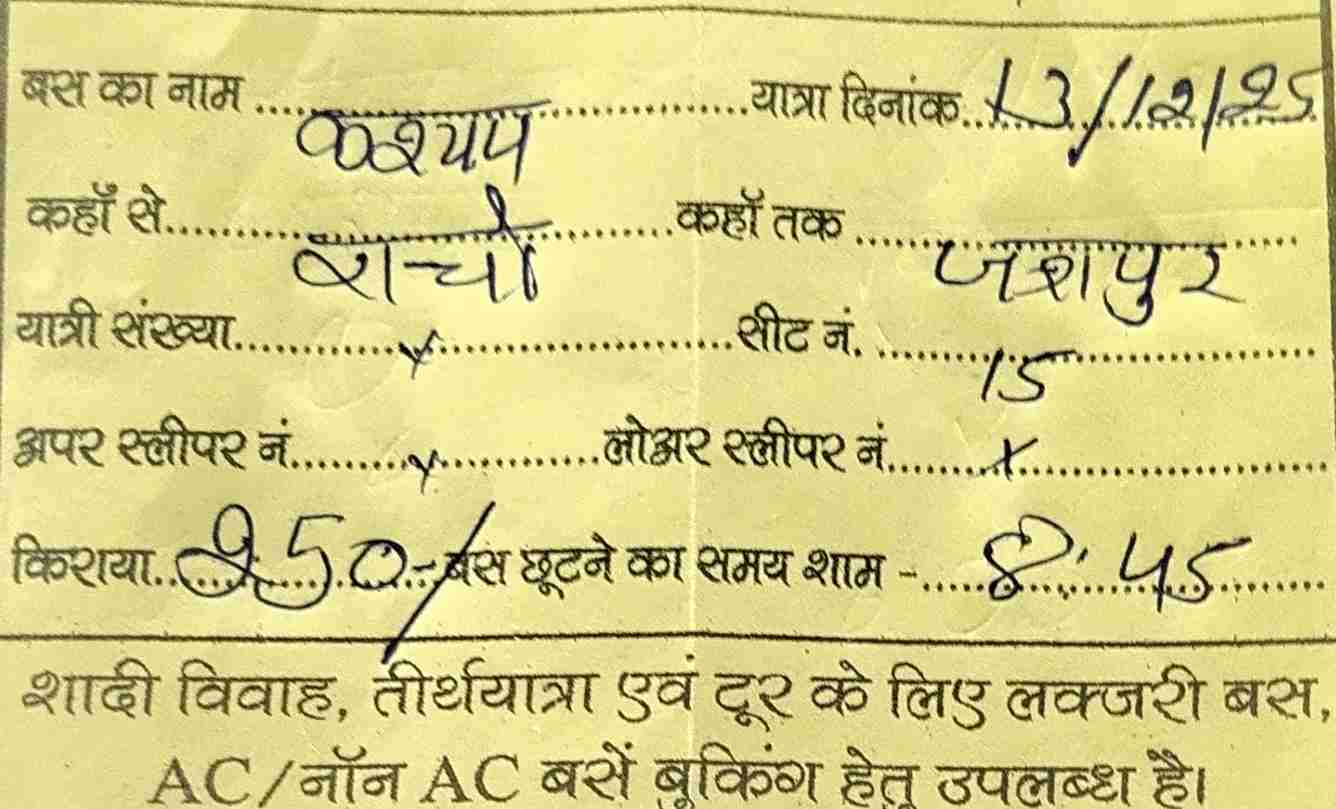 बस का नाम ........ कश्यप ........ यात्रा दिनांक 13/12/25
कहाँ से ........ राची ........ कहाँ तक ........ जशपुर
यात्री संख्या ........ x ........ सीट नं. ........ 15
अपर स्लीपर नं. ........ x ........ लोअर स्लीपर नं. ........ x
किराया.. 250/- बस छूटने का समय शाम -.... 8:45
शादी विवाह, तीर्थयात्रा एवं टूर के लिए लक्जरी बस,
AC/नॉन AC बसें बुकिंग हेतु उपलब्ध है।